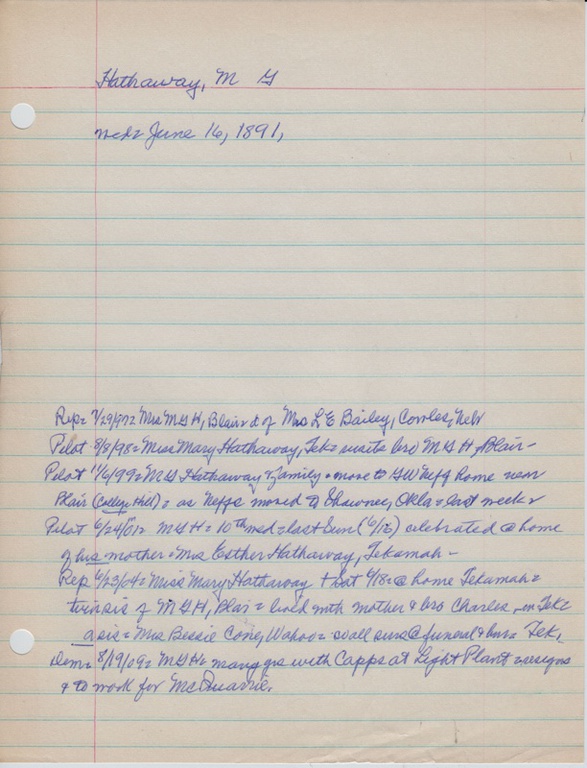 Hathaway, M G
wed= June 16, 1891,
Rep= 7/29/97= Mrs MGH, Blair = d of Mrs L E Bailey, Cowles, Nebr
Pilot 8/8/98= Miss Mary Hathaway, Tek= visits bro MGH, Blair -
Pilot 11/6/99= MG Hathaway & Family = move to GW Neff home near
Blair (College Hill) = as Neffs moved to Shawnee, Okla = last week=
Pilot 6/24/01= MGH= 10th wed = last Sun (6/16) celebrated @ home
of his mother = Mrs Esther Hathaway, Tekamah -
Rep 6/23/04= Miss Mary Hathaway + Sat 6/18= @ home Tekamah =
twin sis of MGH, Blair = lived with mother & bro Charles, in Tek=
a sis = Mrs Bessie Cone, Wahoo = all @ funeral & bur= Tek,
Dem= 8/19/09= MGH= many yrs with Capps at Light Plant = resigns
& to work for McQuarrie.